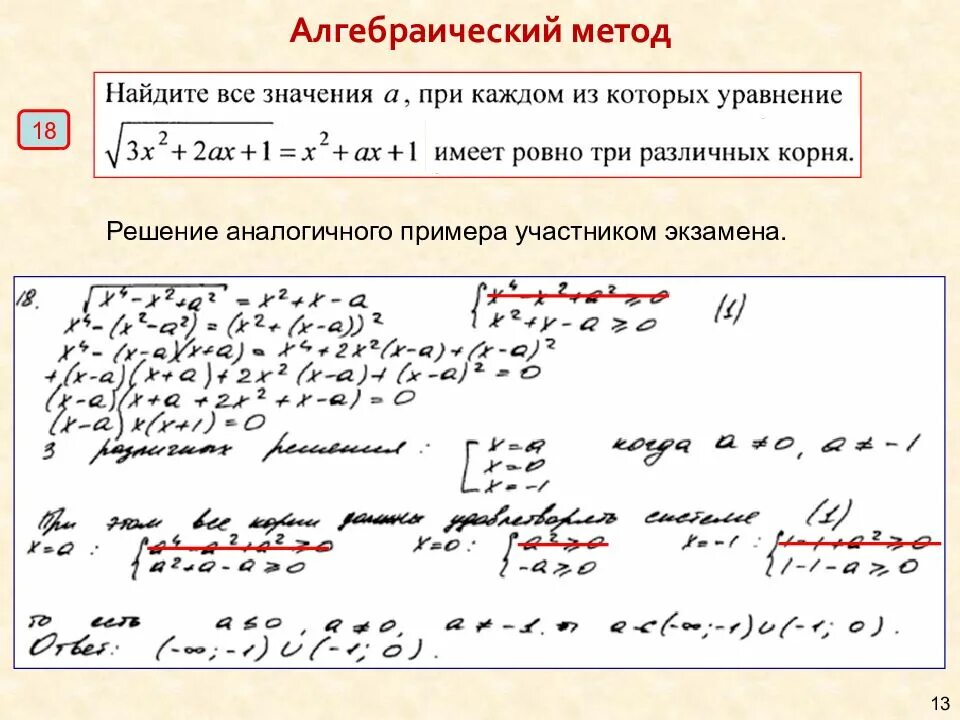 Алгебраический метод
18
Найдите все значения a, при каждом из которых уравнение
√(3x² + 2ax + 1) = x² + ax + 1 имеет ровно три различных корня.
Решение аналогичного примера участником экзамена.
18. √(x⁴ − x² + a²) = x² + x − a { x⁴ − x² + a² ≥ 0
x² + x − a ≥ 0 (1)
x⁴ − (x² − a²) = (x² + (x − a))²
x⁴ − (x − a)(x + a) = x⁴ + 2x²(x − a) + (x − a)²
+(x − a)(x + a) + 2x²(x − a) + (x − a)² = 0
(x − a)(x + a + 2x² + x − a) = 0
(x − a) x (x + 1) = 0
3 различных решения: [ x = a когда a ≠ 0, a ≠ −1
x = 0
x = −1
При этом все корни должны удовлетворять системе (1)
x = a: { a⁴ − a² + a² ≥ 0 x = 0: { a² ≥ 0 x = −1: { 1 − 1 + a² ≥ 0
a² + a − a ≥ 0 −a ≥ 0 1 − 1 − a ≥ 0
то есть a ≤ 0, a ≠ 0, a ≠ −1. a ∈ (−∞; −1) ∪ (−1; 0).
Ответ: (−∞; −1) ∪ (−1; 0).
13